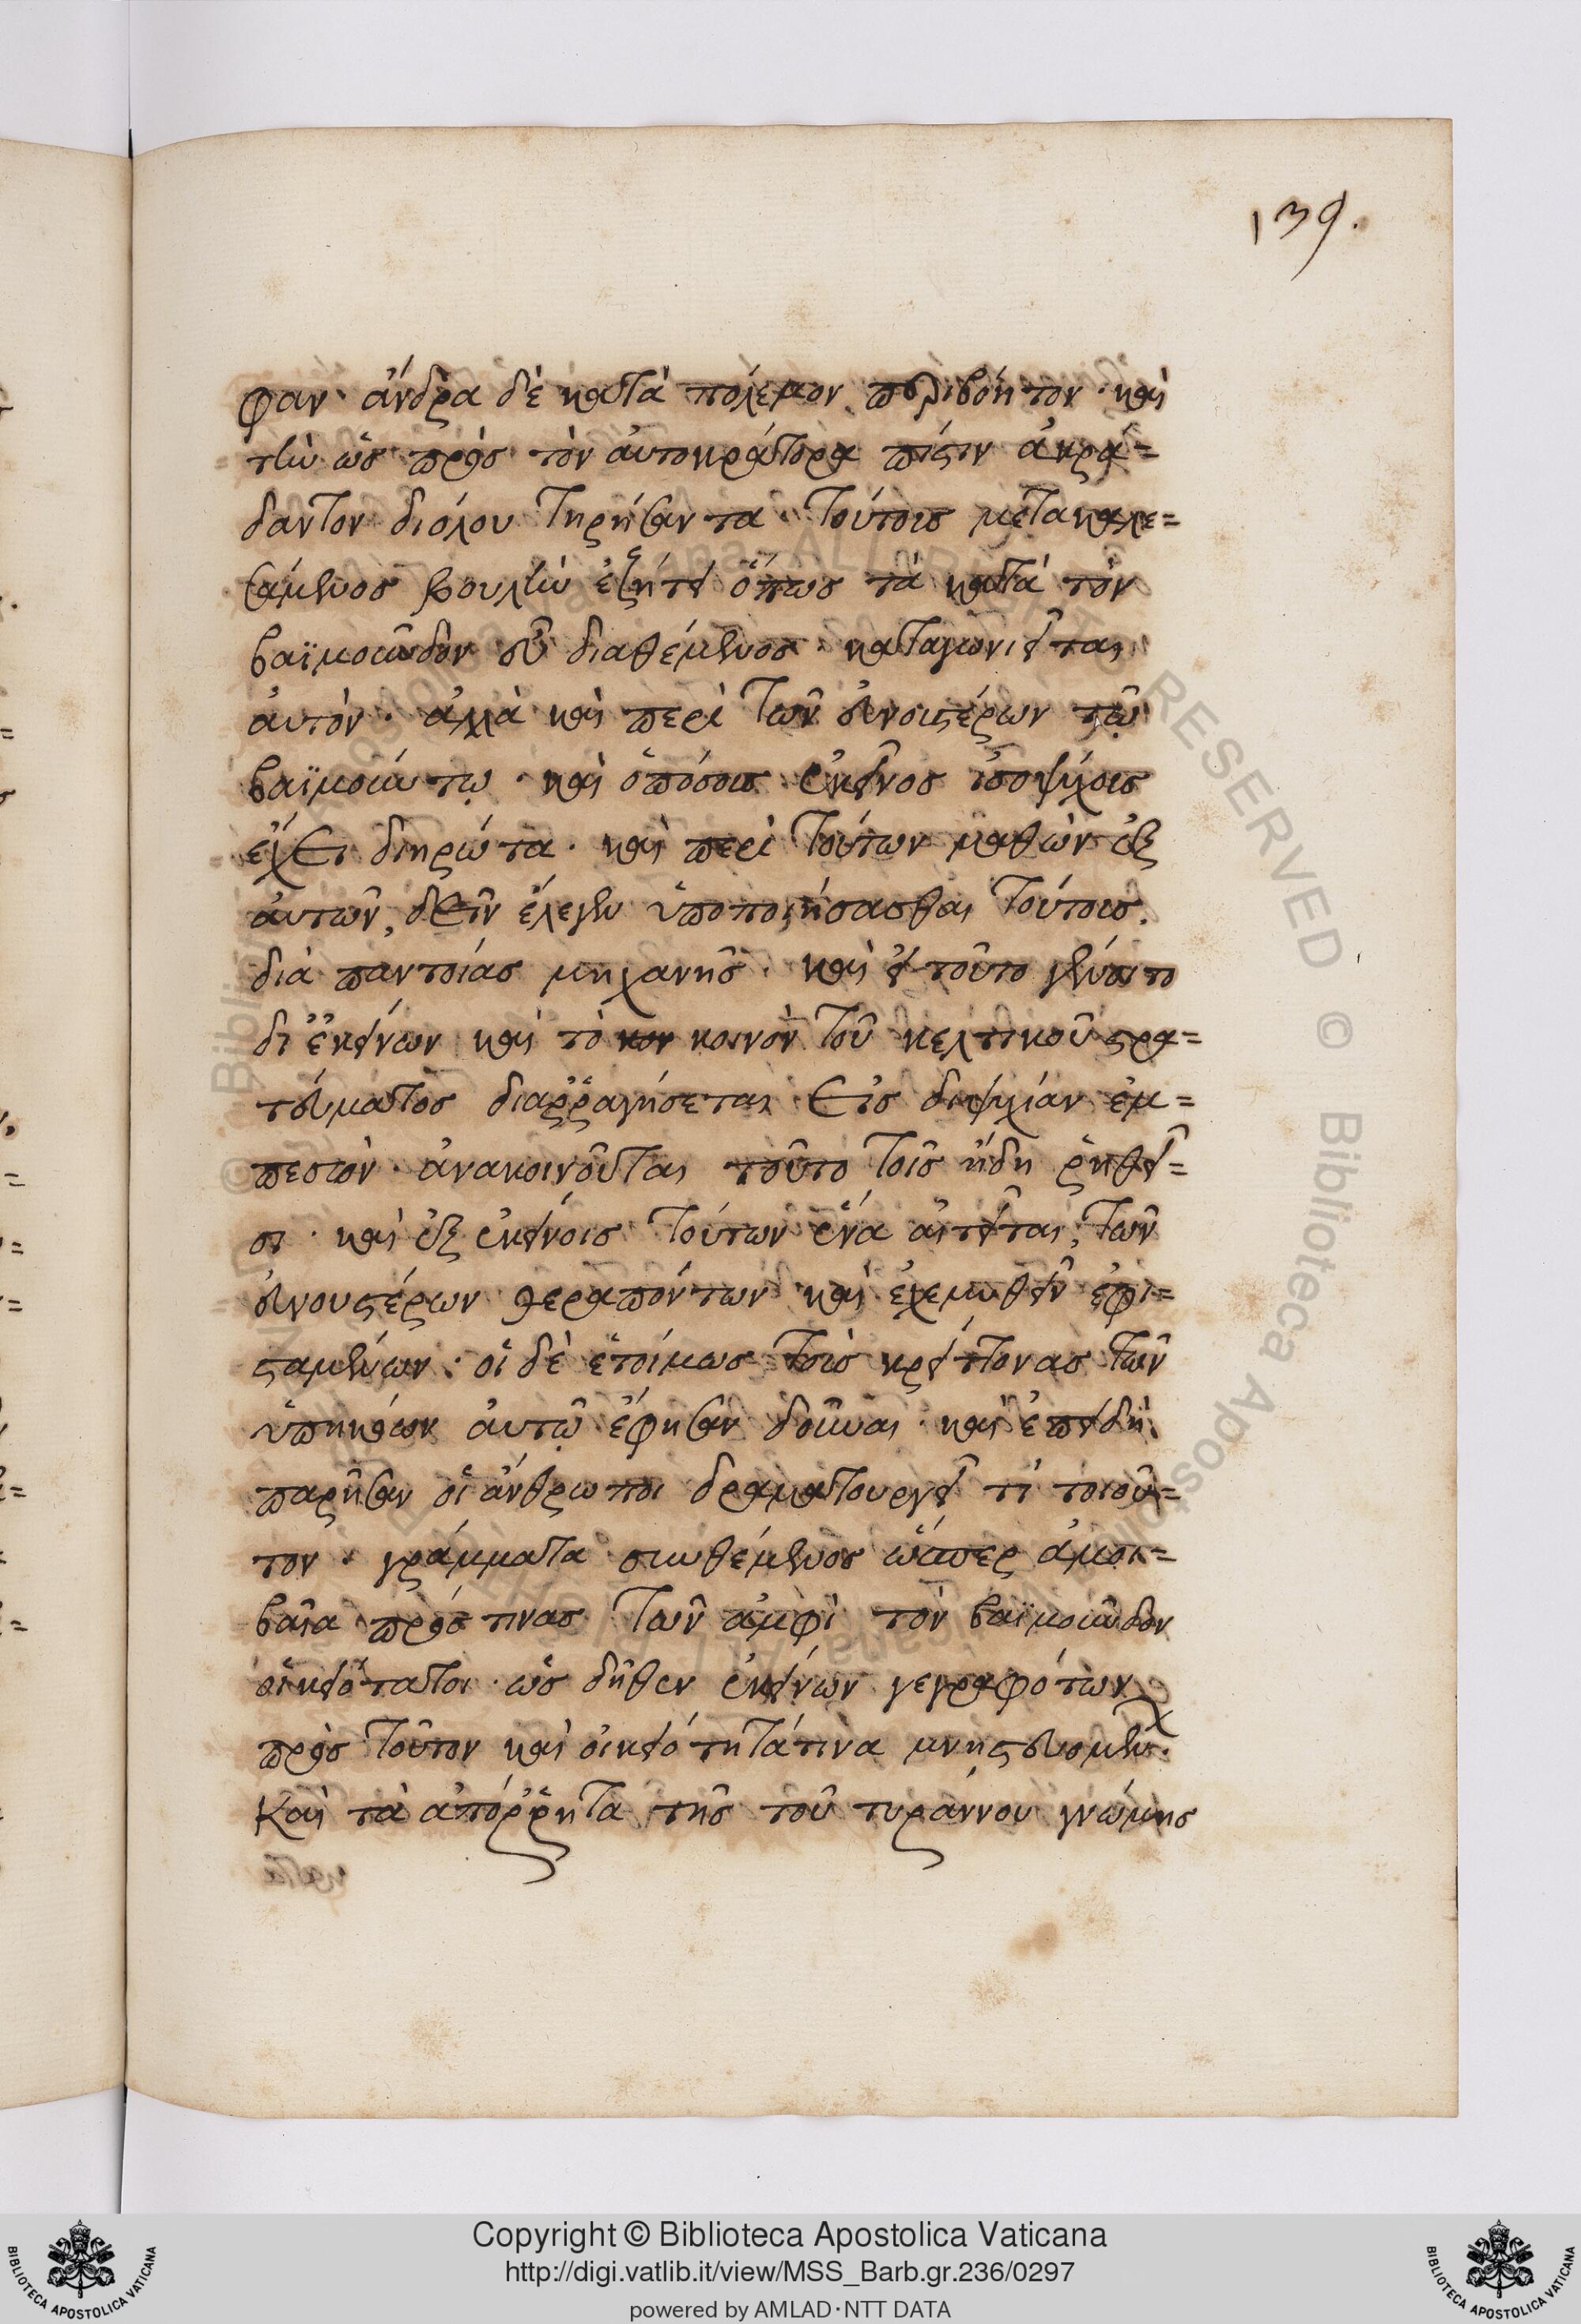 139.
φαν· ἄνδρα δὲ κατὰ πόλεμον περιβόητον· καὶ
τὴν ὡς πρὸς τὸν αὐτοκράτορα πίστιν ἀκρά=
δαντον διόλου τηρήσαντα· τούτοις μετακαλε=
σάμενος βουλὴν ἐζήτει ὅπως τὰ κατὰ τὸν
βαϊμοῦνδον εὖ διαθέμενος· καταγωνιεῖται
αὐτόν· ἀλλὰ καὶ περὶ τῶν εὐνουστέρων τῷ
βαϊμούντῳ· καὶ ὁπόσοις ἐκεῖνος ἰσοψύχοις
ἔχει διηρώτα· καὶ περὶ τούτων μαθὼν ἐξ
αὐτῶν, δεῖν ἔλεγεν ὑποποιήσασθαι τούτοις.
διὰ παντοίας μηχανῆς· καὶ εἰ τοῦτο γένοιτο
δι ἐκείνων καὶ τὸ κοινὸν τοῦ κελτικοῦ στρα=
τεύματος διαῤῥαγήσεται εἰς διψυχίαν ἐμ=
πεστὸν· ἀνακοινοῦται τοῦτο τοῖς ἤδη ῥηθεῖ=
σι· καὶ ἐξ ἐκείνοις τούτων ἕνα αἰτεῖται, τῶν
εὐνουστέρων θεραπόντων καὶ ἐχεμυθεῖν ἐπι=
σταμένων· οἱ δὲ ἑτοίμως τοὺς κρείττονας τῶν
ὑπηκόων αὐτῷ ἔφησαν δοῦναι· καὶ ἐπειδὴ
παρῆσαν οἱ ἄνθρωποι δραματουργεῖ τί τοιοῦ=
τον· γράμματα συνθέμενος ὥσπερ ἀμοι=
βαῖα πρός τινας τῶν ἀμφὶ τὸν βαϊμοῦνδον
οἰκειότατοι· ὡς δῆθεν ἐκείνων γεγραφότων
πρὸς τοῦτον καὶ οἰκειότητά τινα μνηστευομένων.
Καὶ τὰ ἀπόῤῥητα τῆς τοῦ τυράννου γνώμης
Copyright © Biblioteca Apostolica Vaticana
http://digi.vatlib.it/view/MSS_Barb.gr.236/0297
powered by AMLAD·NTT DATA